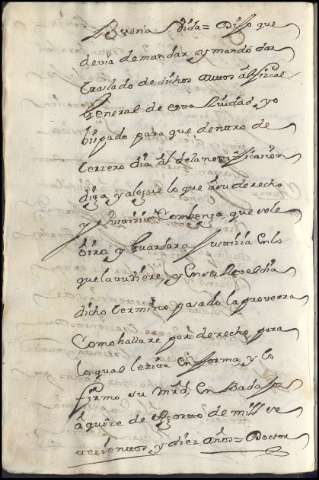 Buena Vida = Dijo que
devia de mandar, y mandó dar
traslado de dichos autos al fiscal
general de esta Ciudad, y o
bispado para que dentro de
tercero dia de la notificacion
diga y alegue lo que a su derecho
y Combenga, que se le
oira, y guardara Justicia en lo
que la tubiere, y en su Rebeldia
dicho termino pasado la proveera
Como hallare por derecho, para
lo qual se cite en forma, y lo
firmo su mrd, en Badajoz
a quince de de mill se
tecientos, y diez años = Doctor